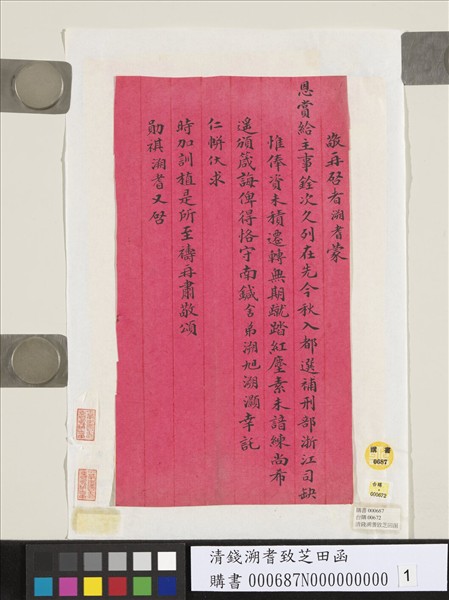 敬再啓者溯耆蒙
恩賞給主事銓次久列在先今秋入都選補刑部浙江司缺
惟俸資未積遷轉無期蹴踏紅塵素未諳練尚希
遙頒箴誨俾得恪守南鍼舍弟溯旭溯灝幸託
仁帡伏求
時加訓植是所至禱再肅敬頌
勛祺溯耆又啓
購書
6687
購書 000687
清錢溯耆致芝田函
清錢溯耆致芝田函
購書 000687N000000000
1